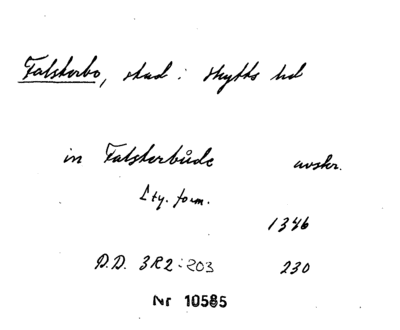 Falsterbo, stad i Skytts hd
in Falsterbůde avskr.
Lty. form.
1346
D.D. 3R2:203 230
Nr 10585